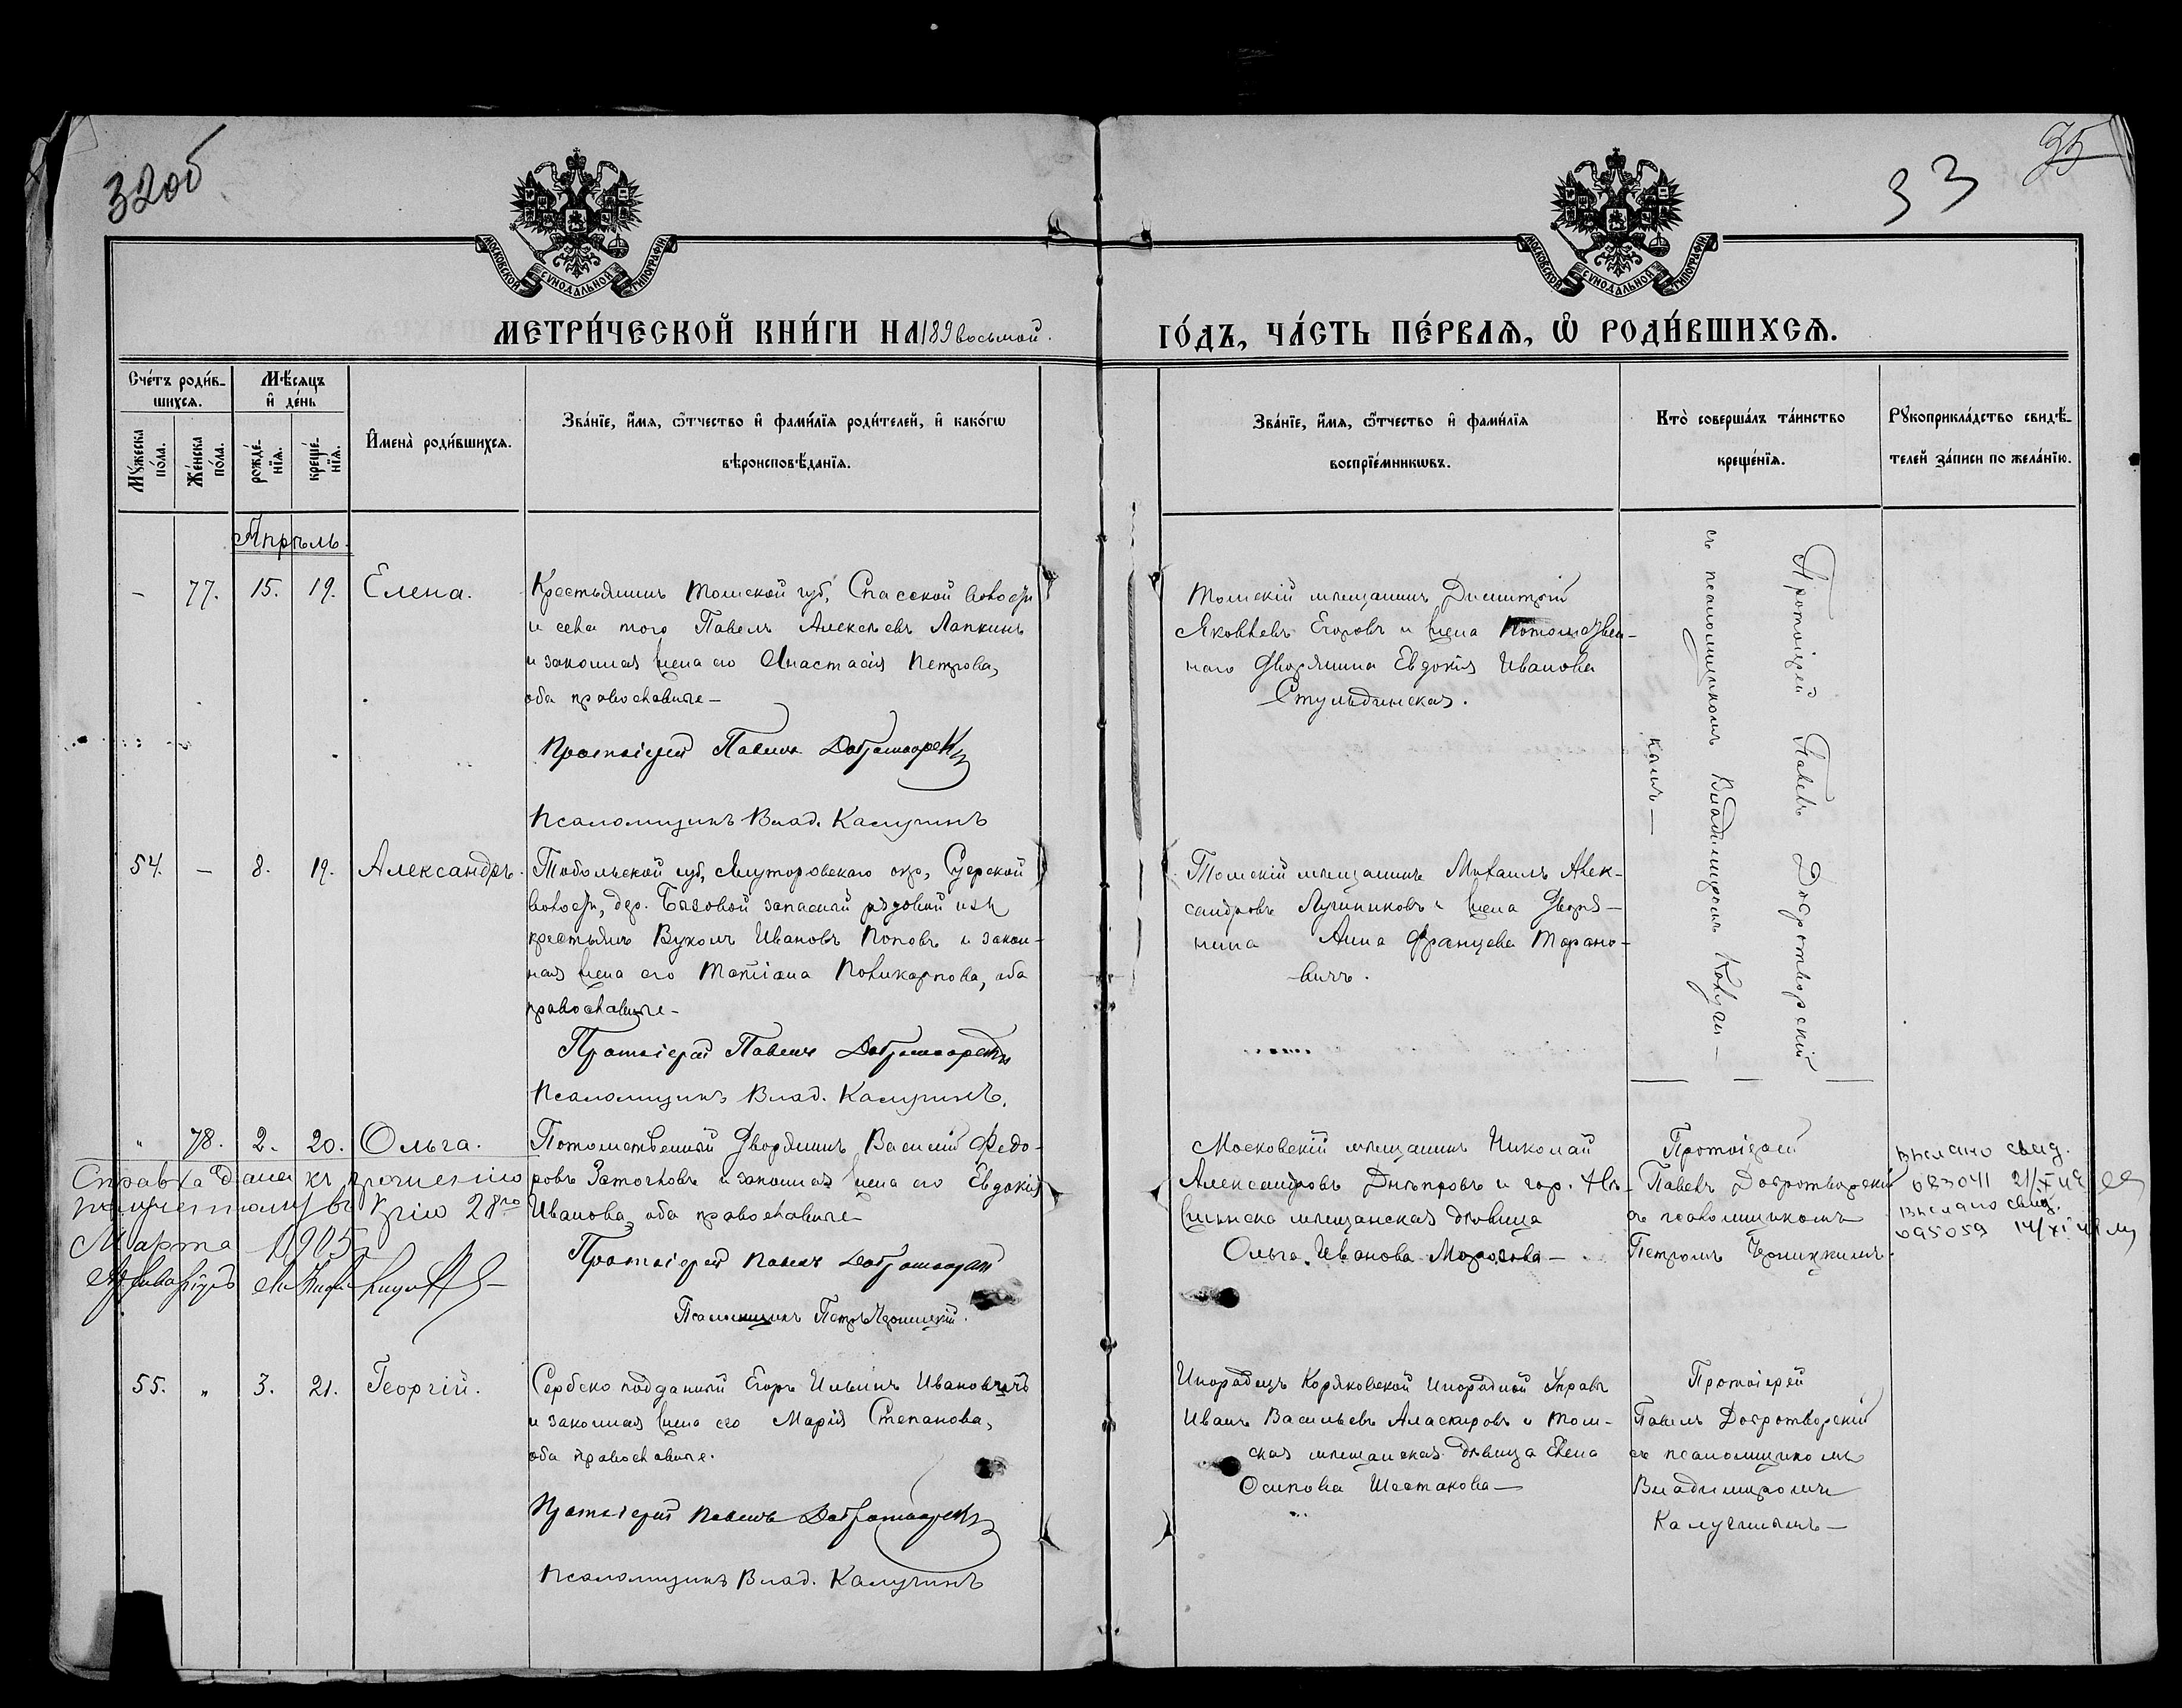 32об
33
35
МОСКОВСКОЙ СѴНОДАЛЬНОЙ ТИПОГРАФІИ
МОСКОВСКОЙ СѴНОДАЛЬНОЙ ТИПОГРАФІИ
МЕТРИ́ЧЕСКОЙ КНИ́ГИ НА 189восьмой.
ГО́ДЪ, ЧА́СТЬ ПЕ́РВАѦ, Ѽ РОДИ́ВШИХСѦ.
Сче́тъ роди́в-
шихсѧ.
Мѣ́сѧцъ
и҆ де́нь
Мꙋ́жеска
по́ла.
Же́нска
по́ла.
рожде́-
нїѧ.
креще́-
нїѧ.
И҆мена̀ роди́вшихсѧ.
Зва́нїе, и҆́мѧ, ѻ҆́тчество и҆ фами́лїѧ роди́телей, и҆ како́гѡ
вѣроисповѣ́данїѧ.
Зва́нїе, и҆́мѧ, ѻ҆́тчество и҆ фами́лїѧ
воспрїе́мникѡвъ.
Кто̀ соверша́лъ та́инство
креще́нїѧ.
Рꙋкоприкла́дство свидѣ́-
телей за́писи по жела́нїю.
Апрѣль.
– 77. 15. 19. Елена.
Крестьянинъ Томской губ, Спасской волости
и села того Павелъ Алексѣевъ Лапкинъ
и законная жена его Анастасія Петрова,
оба православные –
Протоіерей Павелъ Добротворскій
Псаломщикъ Влад. Калугинъ
Томскій мѣщанинъ Димитрій
Яковлевъ Егоровъ и жена Потомствен-
наго Дворянина Евдокія Иванова
Стульгинская.
Протоіерей Павелъ Добротворскій
съ псаломщикомъ Владиміромъ Калуги-
нымъ –
54. – 8. 19. Александръ.
Тобольской губ, Ялуторовскаго окр, Суерской
волости, дер. Бызовой запасный рядовой изъ
крестьянъ Вуколъ Ивановъ Поповъ и закон-
ная жена его Татіана Поликарпова, оба
православные –
Протоіерей Павелъ Добротворскій
Псаломщикъ Влад. Калугинъ.
Томскій мѣщанинъ Михаилъ Алек-
сандровъ Лучинниковъ и жена Дворя-
нина Анна Францева Тарано-
вичъ.
" 78. 2. 20. Ольга.
Потомственный Дворянинъ Василій Федо-
ровъ Заточковъ и законная жена его Евдокія
Иванова, оба православные
Протоіерей Павелъ Добротворскій
Псаломщикъ Петръ Черницкій.
Справка дана къ прошенію
28го
Марта 1905 г.
Архиваріусъ
Московскій мѣщанинъ Николай
Александровъ Днѣпровъ и гор.
мѣщанская дѣвица
Ольга Иванова Морозова –
Протоіерей
Павелъ Добротворскій
съ псаломщикомъ
Петромъ Черницкимъ.
Выслано свид.
023041 21/X
Выслано свид.
095059 14/XI
55. " 3. 21. Георгій.
Сербско подданный Егоръ Ильинъ Ивановичъ
и законная жена его Марія Степанова,
оба православные.
Протоіерей Павелъ Добротворскій
Псаломщикъ Влад. Калугинъ
Инородецъ Коряковской инородной Управы
Иванъ Васильевъ Аласкировъ и Том-
ская мѣщанская дѣвица Елена
Осипова Шестакова –
Протоіерей
Павелъ Добротворскій
съ псаломщикомъ
Владиміромъ
Калугинымъ –